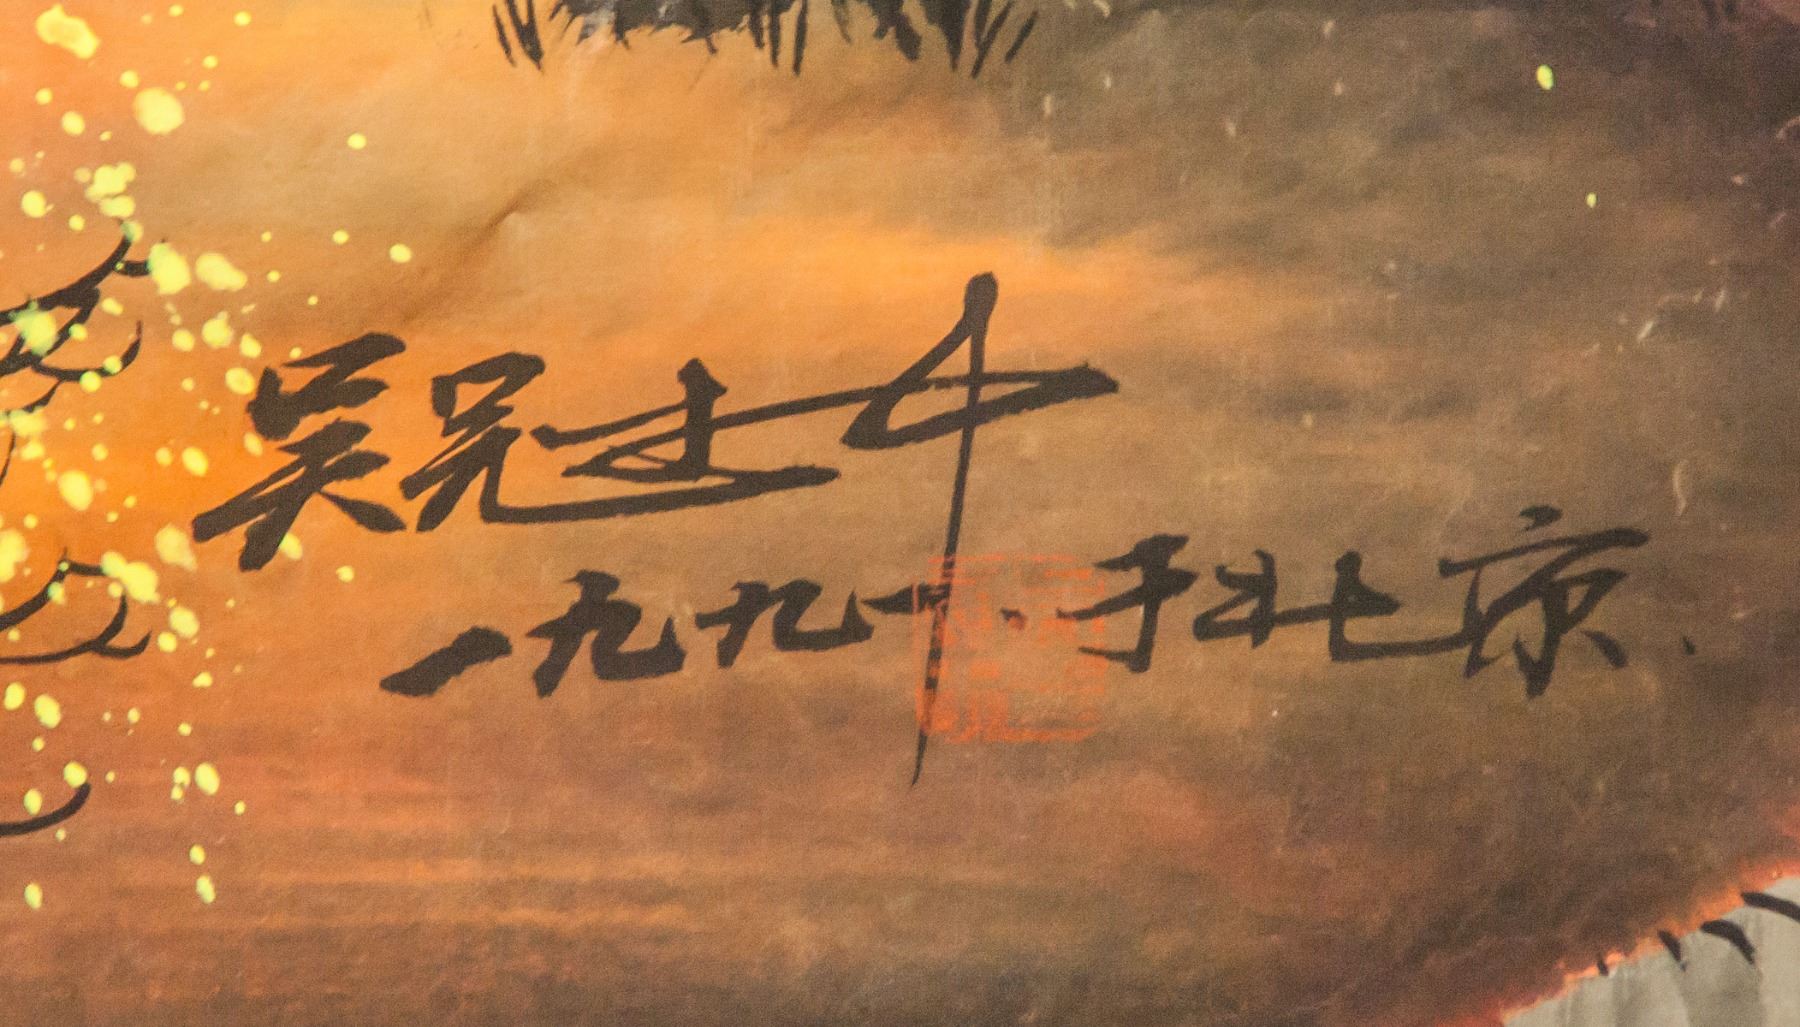 吴冠中
一九九一.于北京.